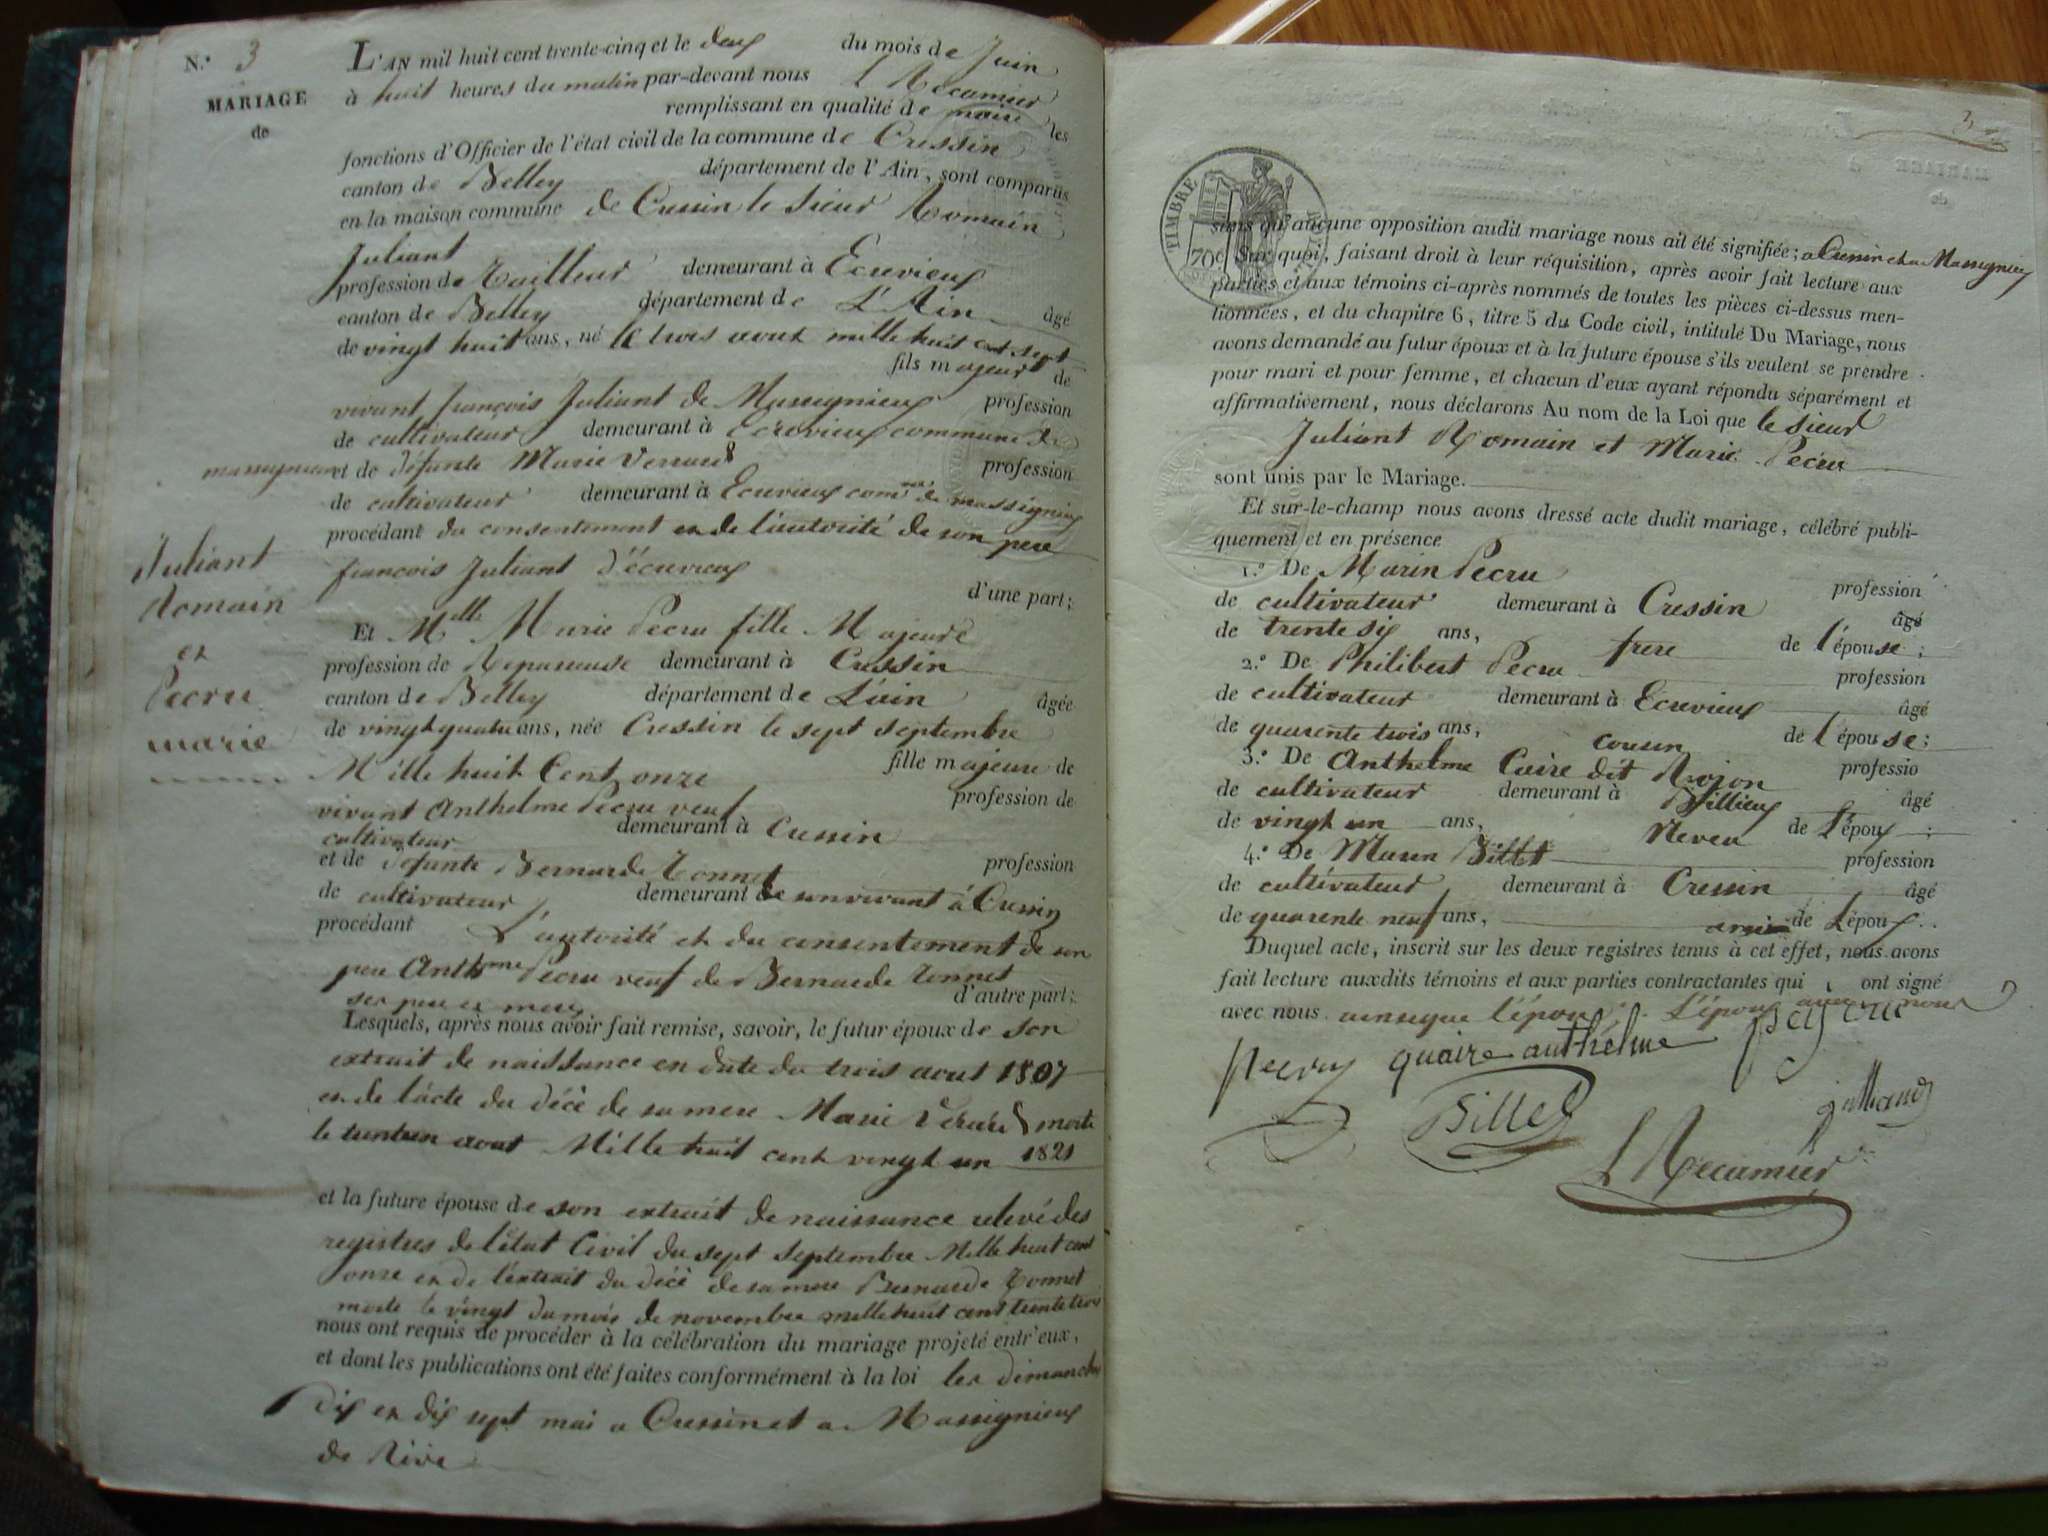 N.° 3
MARIAGE
de
L'AN mil huit cent trente-cinq et le deux du mois de Juin
à huit heures du matin par-devant nous L Recamier
remplissant en qualité de maire les
fonctions d'Officier de l'état civil de la commune de Cressin
canton de Belley département de l'Ain, sont comparus
en la maison commune de Cressin le sieur Romain
Juliant
profession de Tailleur demeurant à Ecrevieux
canton de Belley département de L'Ain âgé
de vingt huit ans, né le trois aout mille huit cent sept
fils majeur de
vivant françois Juliant de Massignieux profession
de cultivateur demeurant à Ecrevieux commune de
massignieux et de défunte Marie profession
de cultivateur demeurant à Ecrevieux comne de massignieux
procédant du consentement et de l'autorité de son pere
francois Juliant d'écrevieux
d'une part;
Juliant
Romain
et
Pecru
marie
Et Melle Marie Pecru fille Majeure
profession de Repasseuse demeurant à Cressin
canton de Belley département de L'ain âgée
de vingt quatre ans, née Cressin le sept septembre
Mille huit Cent onze fille majeure de
vivant Anthelme Pecru veuf profession de
cultivateur demeurant à Cressin
et de défunte Bernarde Tonnet profession
de cultivateur demeurant de son vivant à Cressin
procédant L'autorité et du consentement de son
pere Anthme Pecru veuf de Bernarde Tonnet
ses pere et mere d'autre part;
Lesquels, après nous avoir fait remise, savoir, le futur époux de son
extrait de naissance en date du trois aout 1807
et de l'acte du décè de sa mere Marie morte
le trente un aout Mille huit cent vingt un 1821
et la future épouse de son extrait de naissance relevé des
registres de l'état Civil du sept septembre Mille huit cent
onze et de l'extrait du décè de sa mere Bernarde Tonnet
morte le vingt du mois de novembre mille huit cent trente trois
nous ont requis de procéder à la célébration du mariage projeté entr'eux,
et dont les publications ont été faites conformément à la loi les dimanches
Dix et dix sept mai a Cressin et a Massignieux
de Rive
3
TIMBRE
70c
sans qu'aucune opposition audit mariage nous ait été signifiée; a Cressin et a Massignieux
Sur quoi, faisant droit à leur réquisition, après avoir fait lecture aux
parties et aux témoins ci-après nommés de toutes les pièces ci-dessus men-
tionnées, et du chapitre 6, titre 5 du Code civil, intitulé Du Mariage, nous
avons demandé au futur époux et à la future épouse s'ils veulent se prendre
pour mari et pour femme, et chacun d'eux ayant répondu séparément et
affirmativement, nous déclarons Au nom de la Loi que le sieur
Juliant Romain et Marie Pecru
sont unis par le Mariage.
Et sur-le-champ nous avons dressé acte dudit mariage, célébré publi-
quement et en présence
1.° De Marin Pecru profession
de cultivateur demeurant à Cressin âgé
de trente six ans, frere de l'épouse;
2.° De Philibert Pecru profession
de cultivateur demeurant à Ecrevieux âgé
de quarente trois ans, cousin de l'épouse;
3.° De Anthelme Cuire dit Rojon professio
de cultivateur demeurant à Billieux âgé
de vingt un ans, Neveu de L'époux;
4.° De Marin Billet profession
de cultivateur demeurant à Cressin âgé
de quarente neuf ans, ami de L'époux.
Duquel acte, inscrit sur les deux registres tenus à cet effet, nous avons
fait lecture auxdits témoins et aux parties contractantes qui ont signé
avec nous ainsique l'époux L'épouse avec nous
pecru quaire anthelme
Billet
julliand
L Recamier